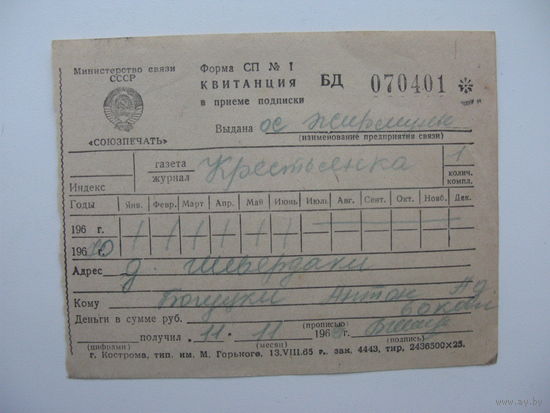 Министерство связи
СССР
«СОЮЗПЕЧАТЬ»
Форма СП № 1
КВИТАНЦИЯ
в приеме подписки
БД 070401
Выдана ос
(наименование предприятия связи)
Индекс
газета
журнал
Крестьянка
1
колич.
компл.
Годы Янв. Февр. Март Апр. Май Июнь Июль Авг. Сент. Окт. Нояб. Дек.
196 г.
196 г.
Адрес д. Шевердаки
Кому Богуцки Антон
Деньги в сумме руб.
(цифрами) (прописью)
получил 11. 11 196 г.
(месяц) (подпись)
г. Кострома, тип. им. М. Горького, 13.VIII.65 г., зак. 4443, тир. 2436500×25.
www.ay.by